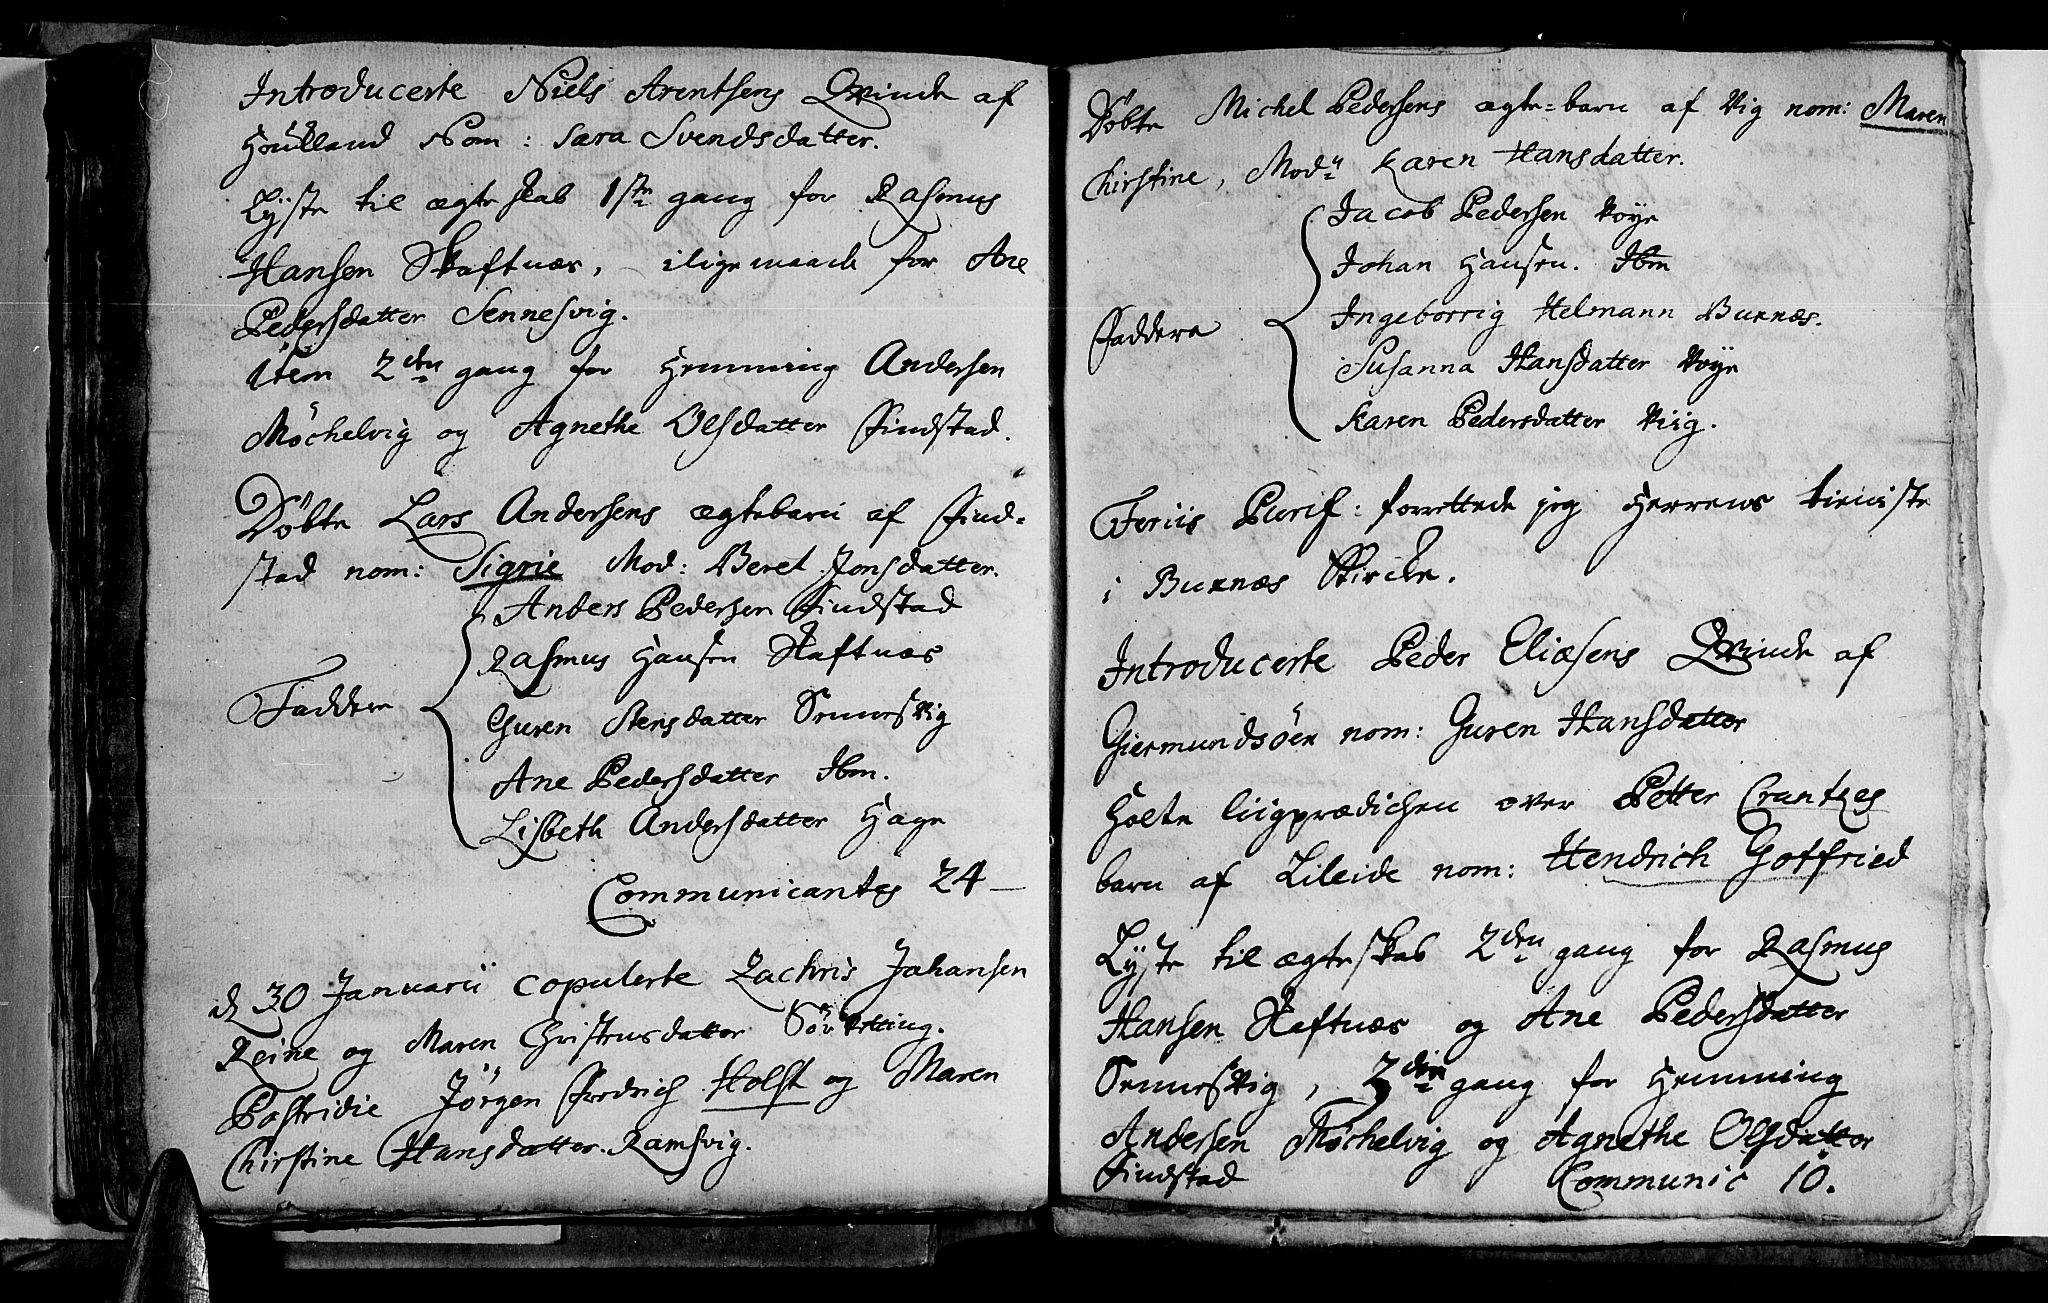 Introducerte Niels Arentsens Qvinde af
Houlland Nom: Sara Svendsdatter.
Lyste til ægteskab 1ste gang for Rasmus
Hansen Skaftnæs, iligemaade for Ane
Pedersdatter Sennesvig.
Item 2den gang for Hemming Andersen
Møchelvig og Agnethe Olsdatter Findstad.
Döbte Lars Andersens ægtebarn af Find=
stad nom: Sigrie Mod: Beret Jonsdatter.
Anders Pedersen Findstad
Rasmus Hansen Skaftnæs
Faddere Guren Stensdatter Sennesvig
Ane Pedersdatter Ibm.
Lisbeth Andersdatter Hage
Communicantes 24
d 30 Januarii copulerte Zachris Johansen
Reine og Maren Christensdatter
Postridie Jörgen Fredrich Holst og Maren
Chirstine Hansdatter. Ramsvig.
Döbte Michel Pedersens ægte=barn af Vig nom: Maren
Chirstine, Modn Karen Hansdatter.
Jacob Pedersen Vøye
Johan Hansen. Ibm
Faddere Ingeborrig Helmann Buxnæs.
Susanna Hansdatter Vøye
Karen Pedersdatter Viig.
Feriis Purif: forrettede jeg Herrens tieniste
i Buxnæs Kircke.
Introducerte Peder Eliæsens Qvinde af
Giermundsöen nom: Guren Hansdatter
Holte liigprædichen over Petter Crantzes
barn af Lileide nom: Hendrich Gotfried
Lyste til ægteskab 2den gang for Rasmus
Hansen Skaftnæs og Ane Pedersdatter
Sennesvig, 3die gang for Hemming
Andersen Møchelvig og Agnethe Olsdatter
Findstad Communic 10.